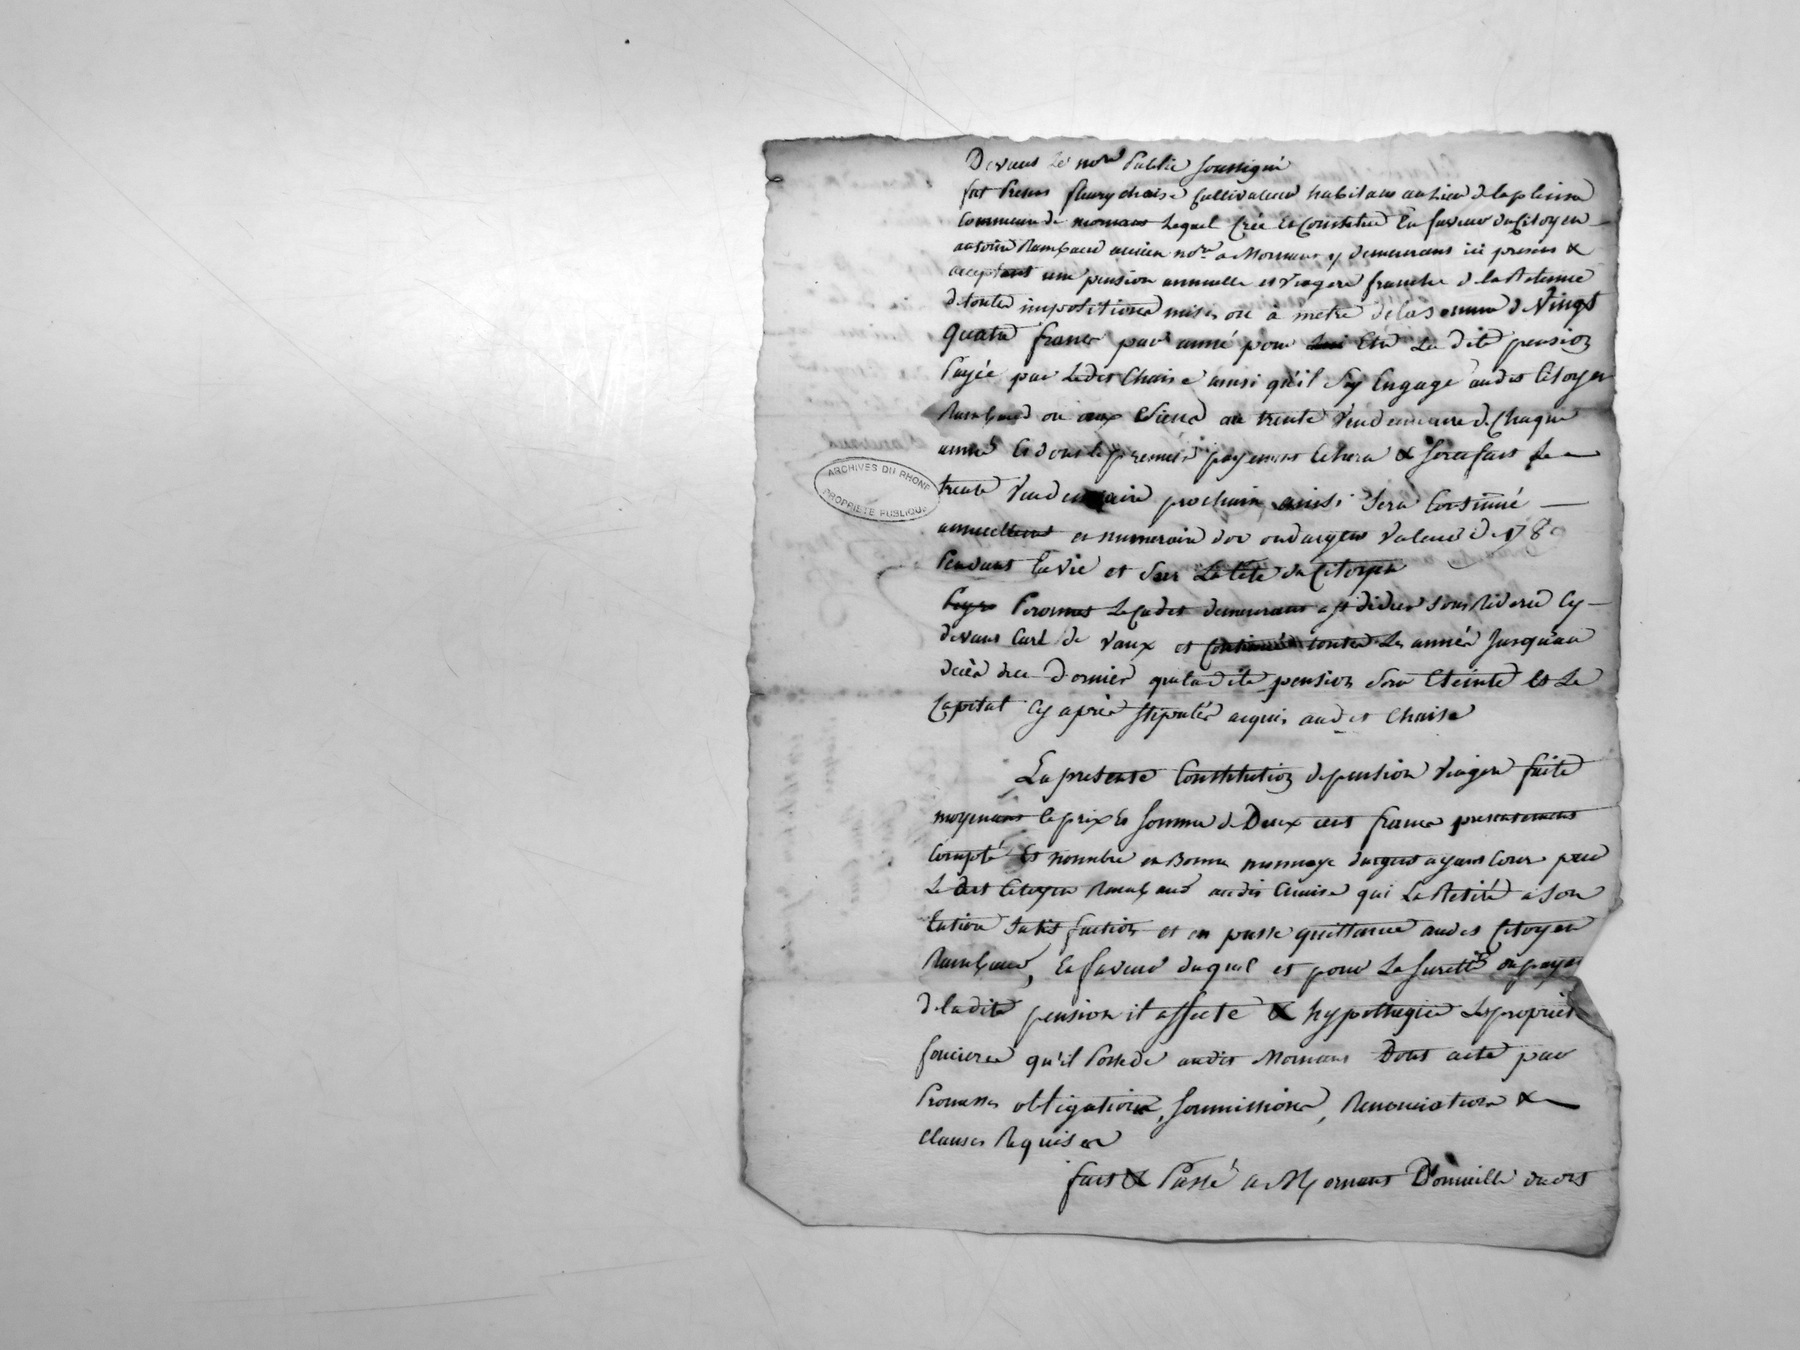 Devant Le no.re Public soussigné
fut Present fleury chaise Cultivateur habitant au Lieu de la pleine
Commune de mornant Lequel Crée et Constitue En faveur du Citoyen
antoine Rambaud ancien no.re a Mornant y demeurant ici present &
acceptant une pension annuelle et viagere franche de la Retenue
de toutes impositions mises ou a metre de la somme de Vingt
quatre francs par année pour Etre La dite pension
Payée par Ledit Chaise ainsi qu'il s'y Engage audit Citoyen
Rambaud ou aux siens au trente Vendemiaire de Chaque
année Et dont le premier payement Echera & sera fait Le
trente Vendemiaire prochain, ainsi sera Continué
annuellement en numeraire d'or ou d'argent Valeur de 178
Pendant La vie et sur La tête du Citoyen
Peronnet Le Cadet demeurant a st didier sous Riverie Cy
devant Curé de vaux et Continué toutes Les années Jusqu'au
decès de ce dernier que ladite pension sera Eteinte et Le
Capital Cy après stipulés acquis audit Chaise
La presente Constitution de pension viagere faite
moyenant le prix et somme de Deux cent francs presentement
Compté et nombré en Bonne monnoye d'argent ayant Cour par
Le dit Citoyen Rambaud audit Chaise qui La Retiré a son
Entiere satisfaction et en passe quittance audit Citoyen
Rambaud, En faveur duquel et pour La sureté du paye
de ladite pension il affecte & hypotheque Les propriet
foncieres qu'il Possede audit Mornant Dont acte par
Promesses obligations, soumissions, Renonciations &
clauses Requises
fait & Passé a Mornant Domicille dudit
ARCHIVES DU RHONE
PROPRIÉTÉ PUBLIQUE